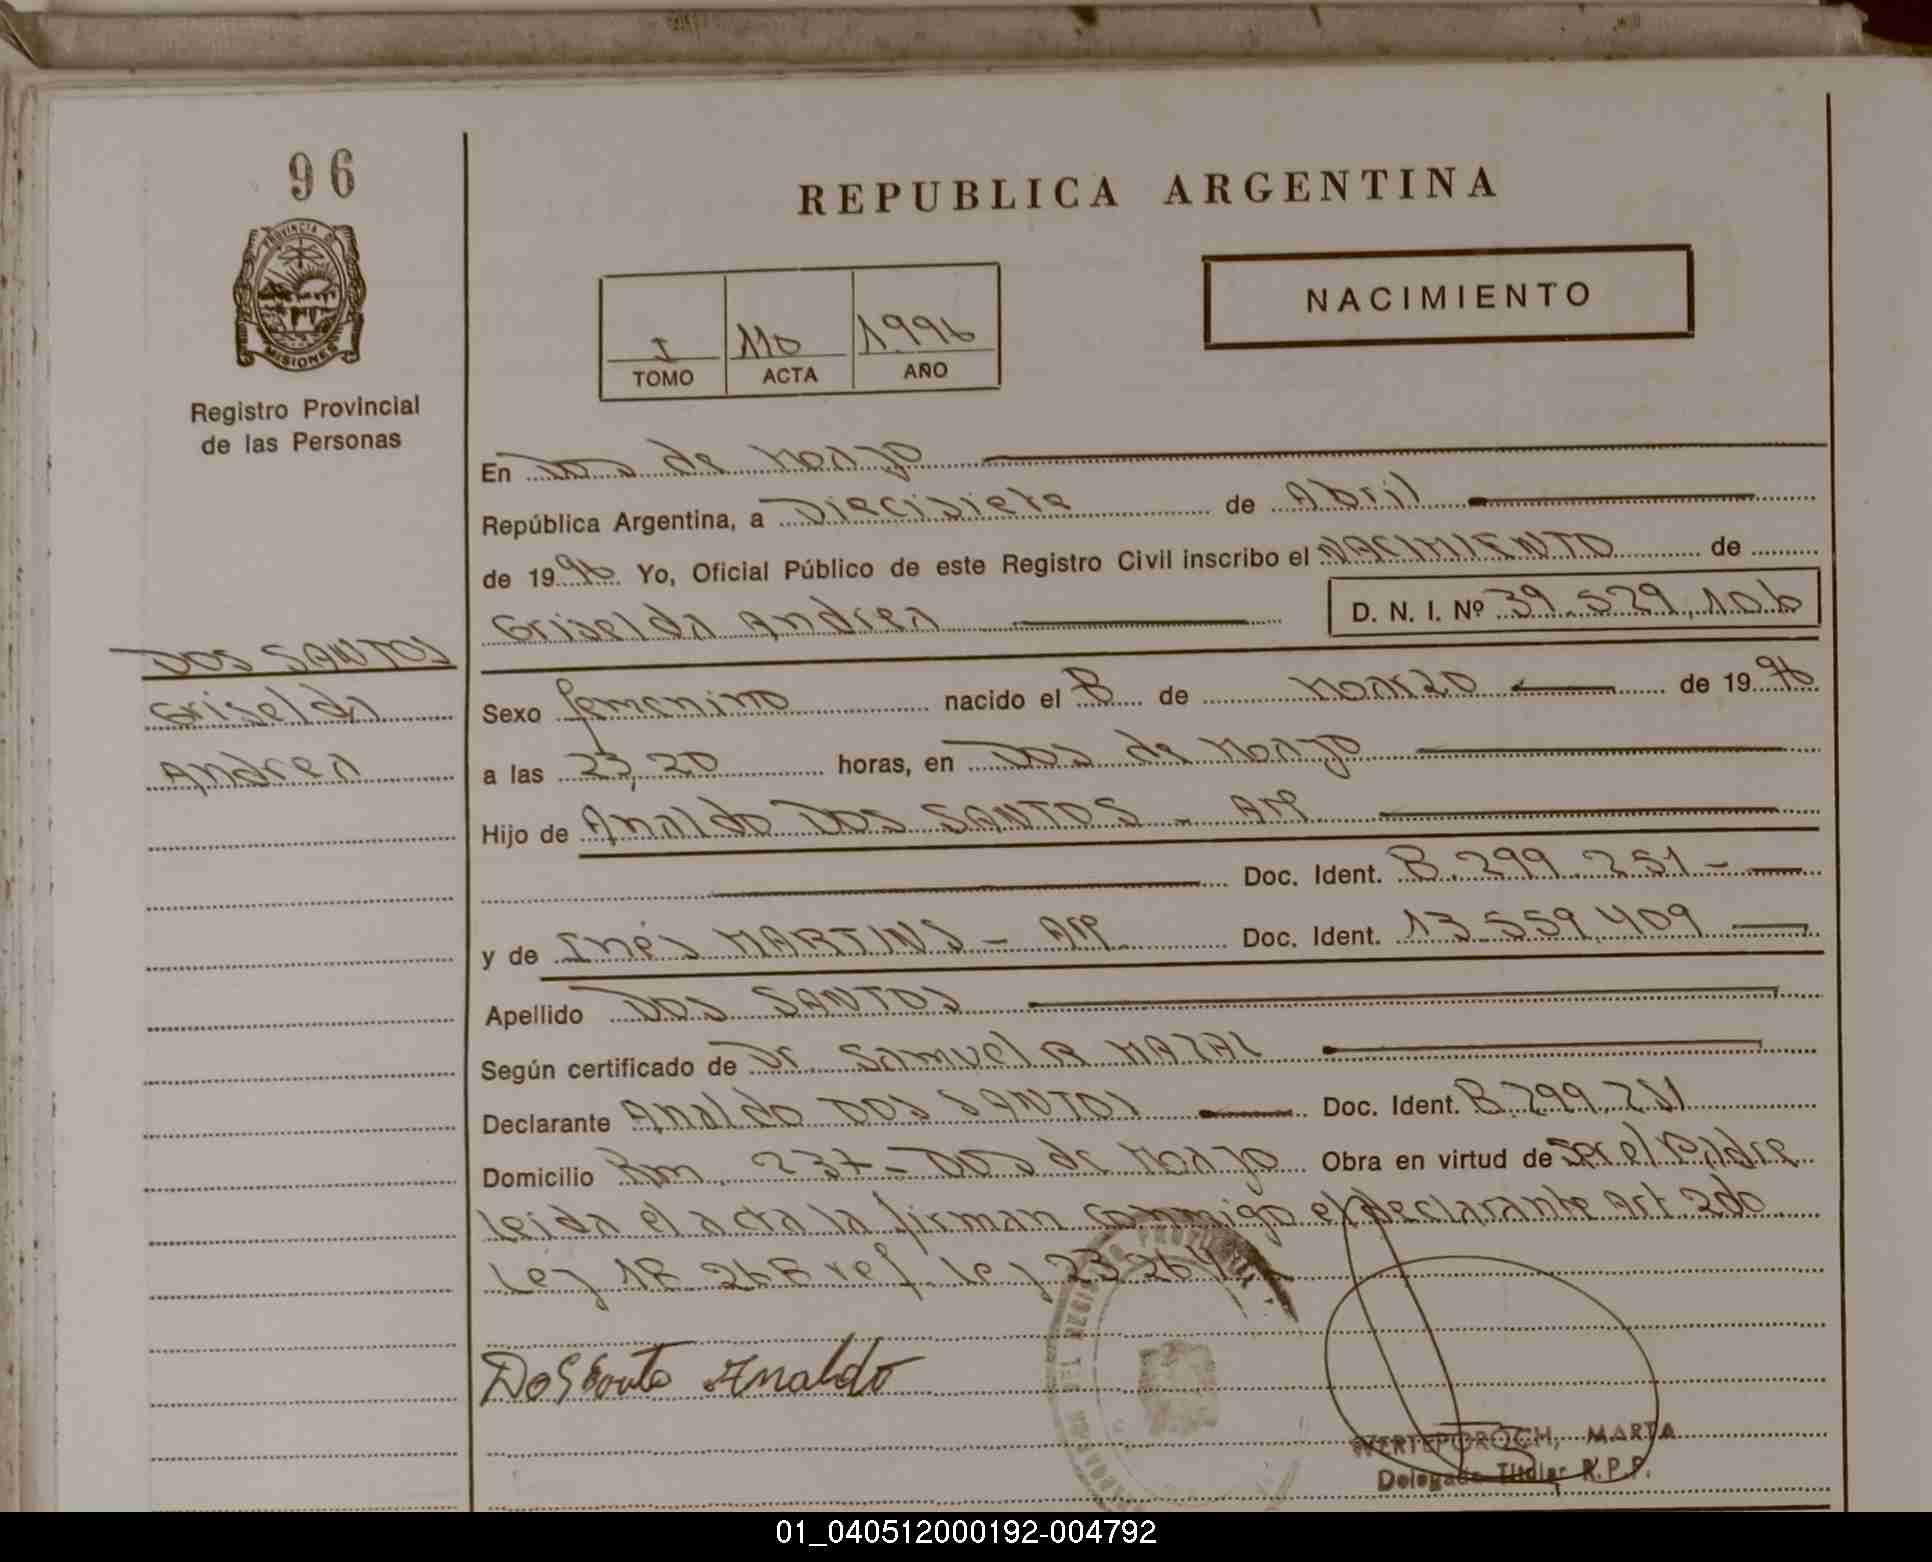 96
PROVINCIA DE
MISIONES
Registro Provincial
de las Personas
REPUBLICA ARGENTINA
NACIMIENTO
I 110 1996
TOMO ACTA AÑO
En Dos de Mayo
República Argentina, a Diecisiete de Abril
de 1996 Yo, Oficial Público de este Registro Civil inscribo el NACIMIENTO de
Griselda Andrea D. N. I. Nº 39.529.106
DOS SANTOS
Griselda
Andrea
Sexo femenino nacido el 8 de Marzo de 1996
a las 23,20 horas, en Dos de Mayo
Hijo de Analdo DOS SANTOS - Arg
Doc. Ident. 8.299.251 -
y de Inés MARTINS - Arg Doc. Ident. 13.559.409
Apellido DOS SANTOS
Según certificado de Dr. Samuel R MAZAL
Declarante Analdo DOS SANTOS Doc. Ident. 8.299.251
Domicilio Km. 237 - Dos de Mayo Obra en virtud de ser el Padre
leida el acta la firman conmigo el declarante Art 2do
Ley 18.248 ref. Ley 23.264
Dos Santo Analdo
WERTEPOROCH, MARTA
Delegado Titular R.P.P.
01_040512000192-004792